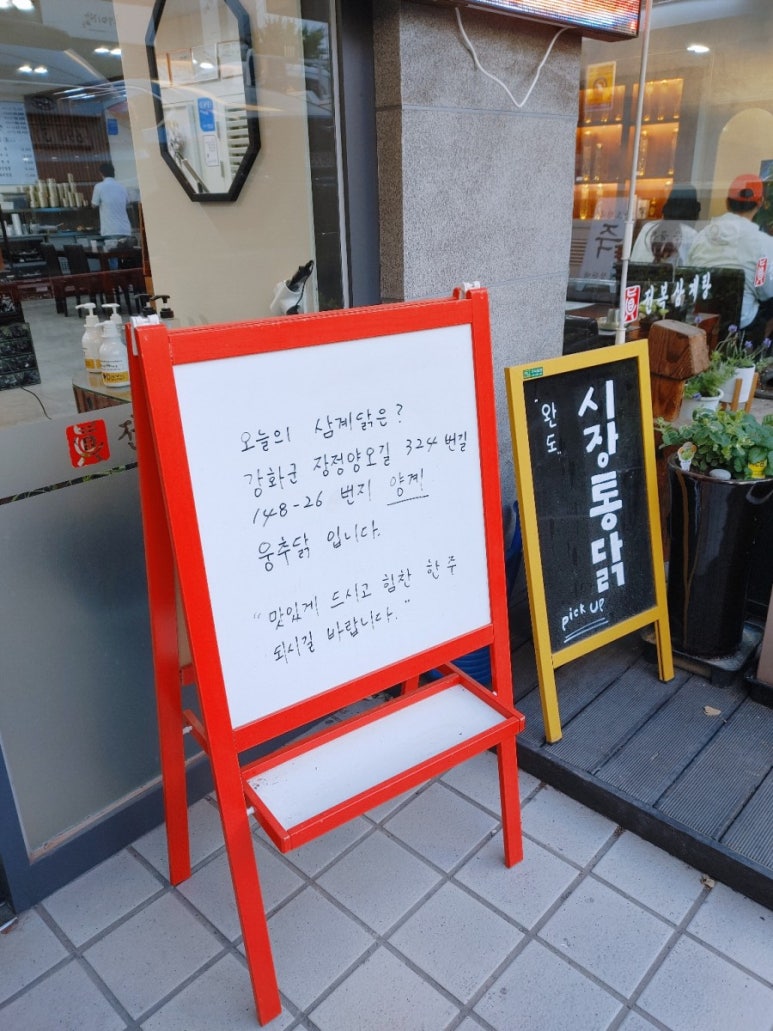 오늘의 삼계닭은?
강화군 장정양오길 324번길
148-26 번지 양계
웅추닭 입니다.
"맛있게 드시고 힘찬 한 주
되시길 바랍니다."
완도
시장통닭
pick up
전복삼계탕